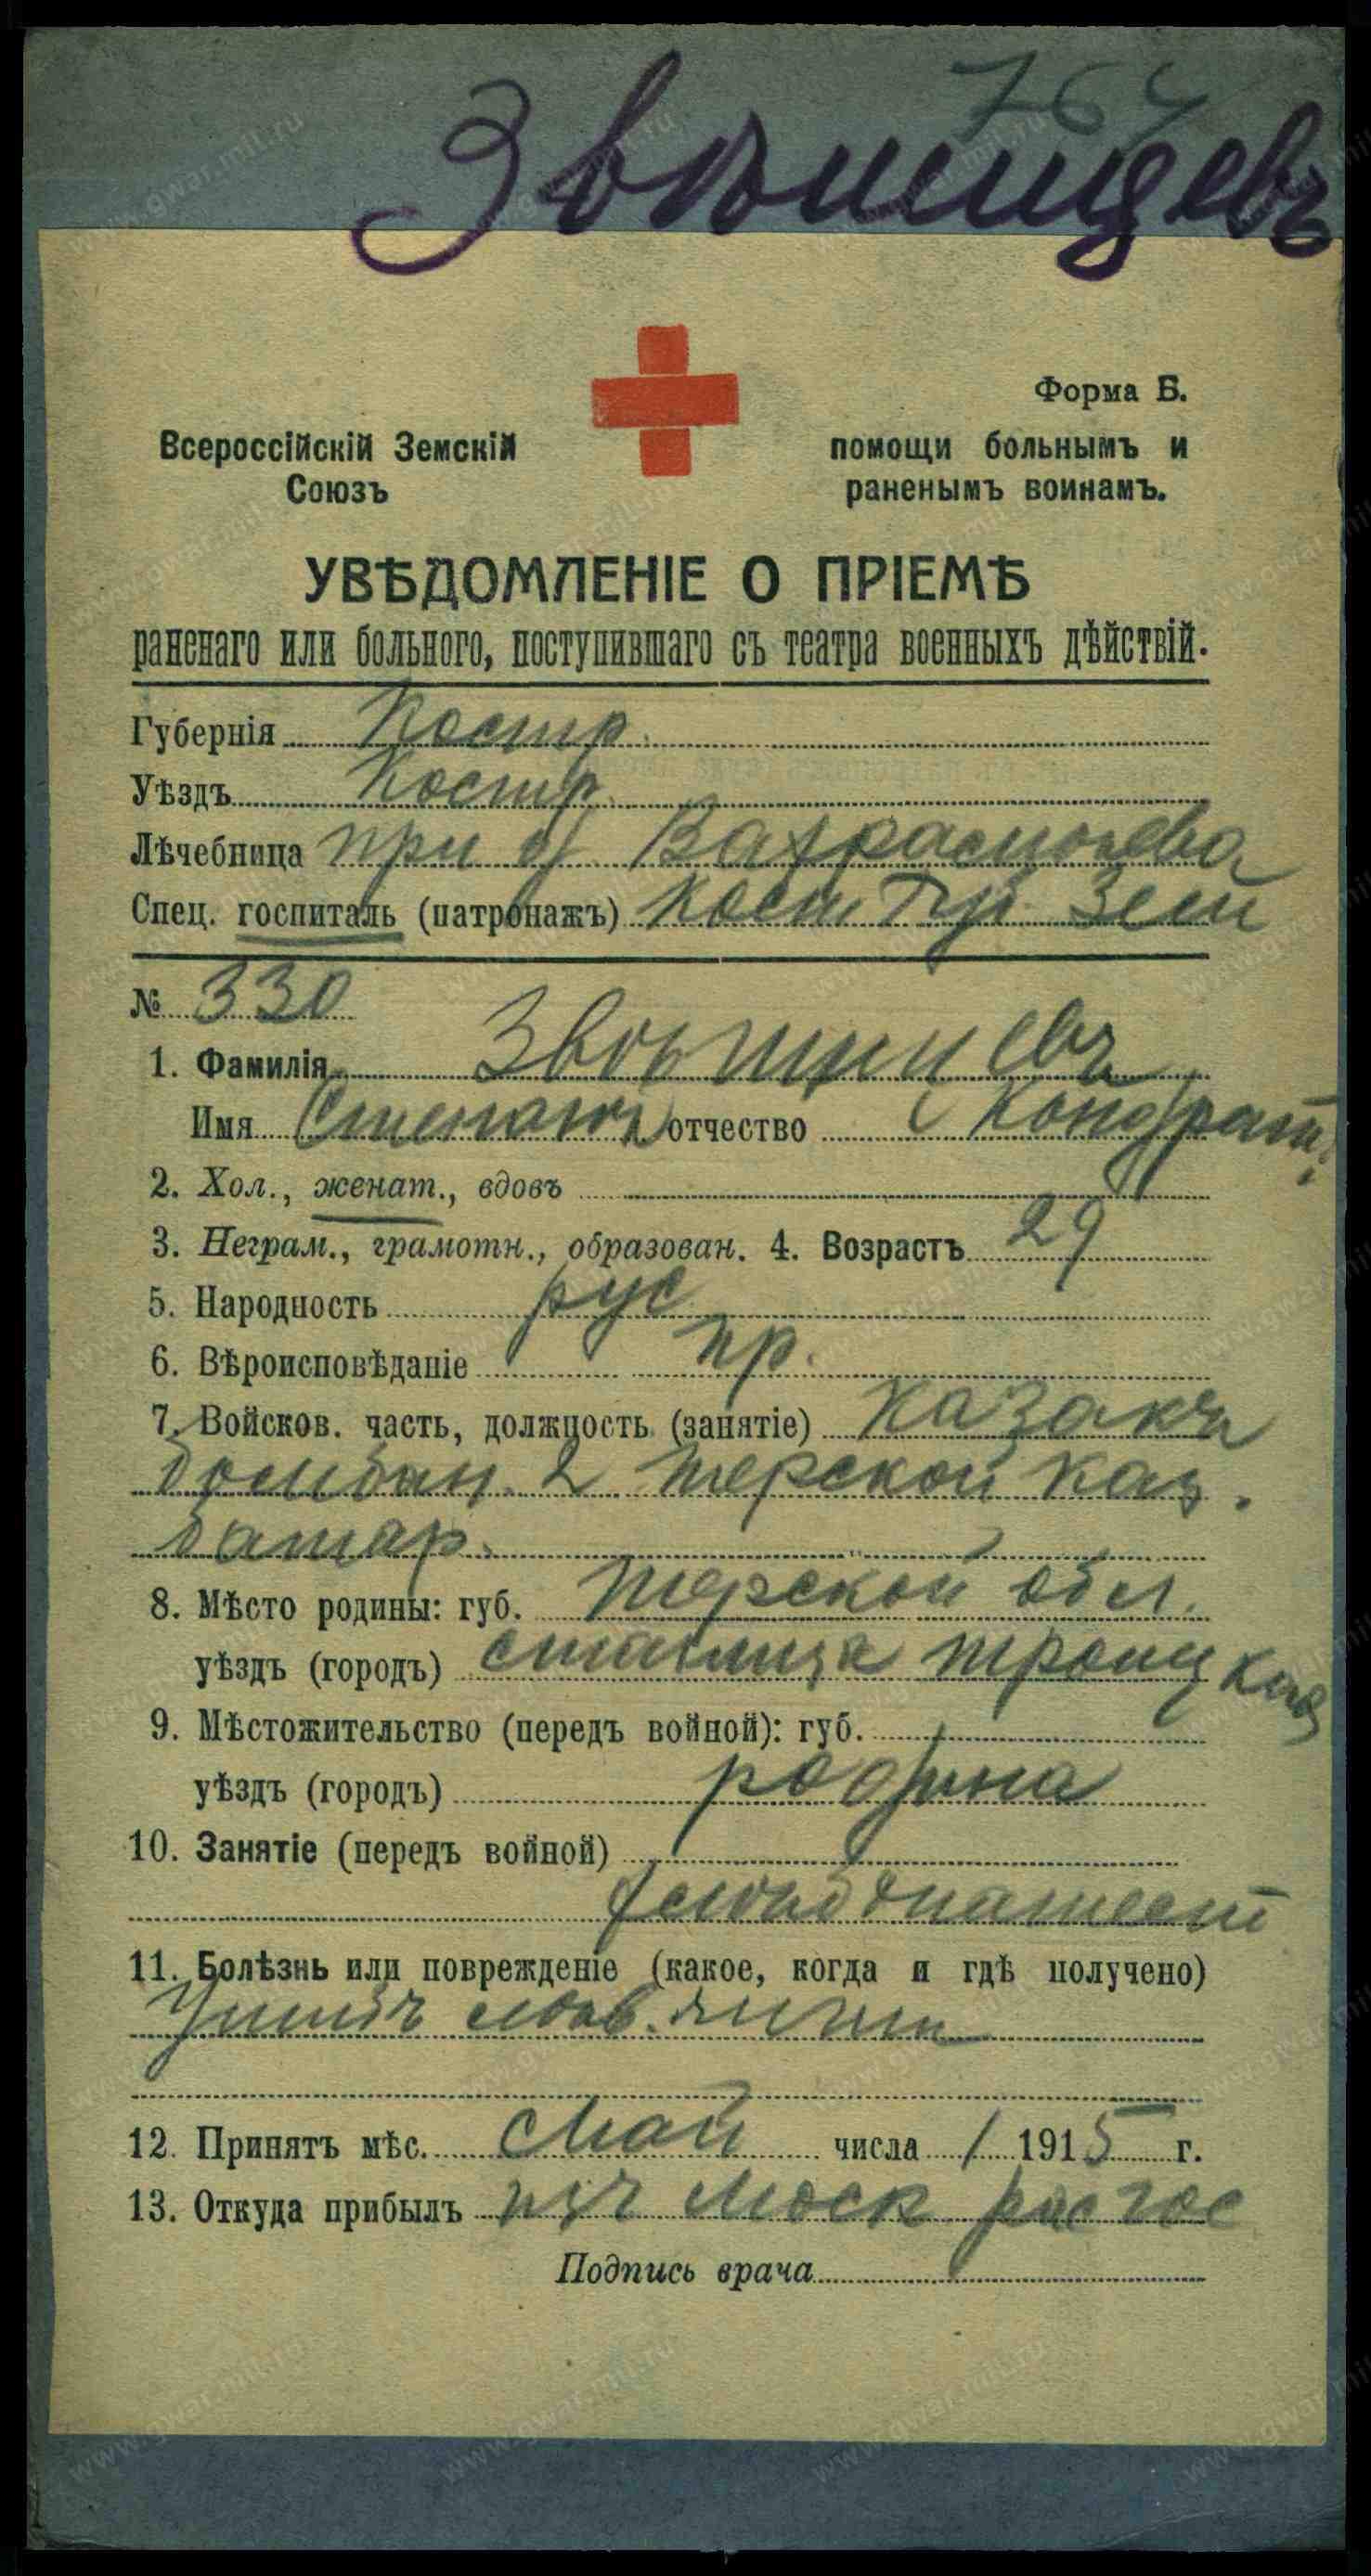 764
Форма Б.
Всероссійскій Земскій
Союзъ
помощи больнымъ и
раненымъ воинамъ.
УВѢДОМЛЕНІЕ О ПРІЕМѢ
раненаго или больного, поступившаго съ театра военныхъ дѣйствій.
Губернія Костр.
Уѣздъ Костр.
Лѣчебница при
Спец. госпиталь (патронажъ) Кост. Губ. Зем
№ 330
1. Фамилія
Имя Степанъ отчество Кондрат.
2. Хол., женат., вдовъ
3. Неграм., грамотн., образован. 4. Возрастъ 29
5. Народность рус
6. Вѣроисповѣданіе пр.
7. Войсков. часть, должность (занятіе) казакъ
2 Терской каз.
батар.
8. Мѣсто родины: губ. Терской обл.
уѣздъ (городъ) станица Троицкая
9. Мѣстожительство (передъ войной): губ.
уѣздъ (городъ) родина
10. Занятіе (передъ войной)
11. Болѣзнь или поврежденіе (какое, когда и гдѣ получено)
Ушибъ
12. Принятъ мѣс. Май числа 1 1915 г.
13. Откуда прибылъ изъ Моск
Подпись врача
www.gwar.mil.ru